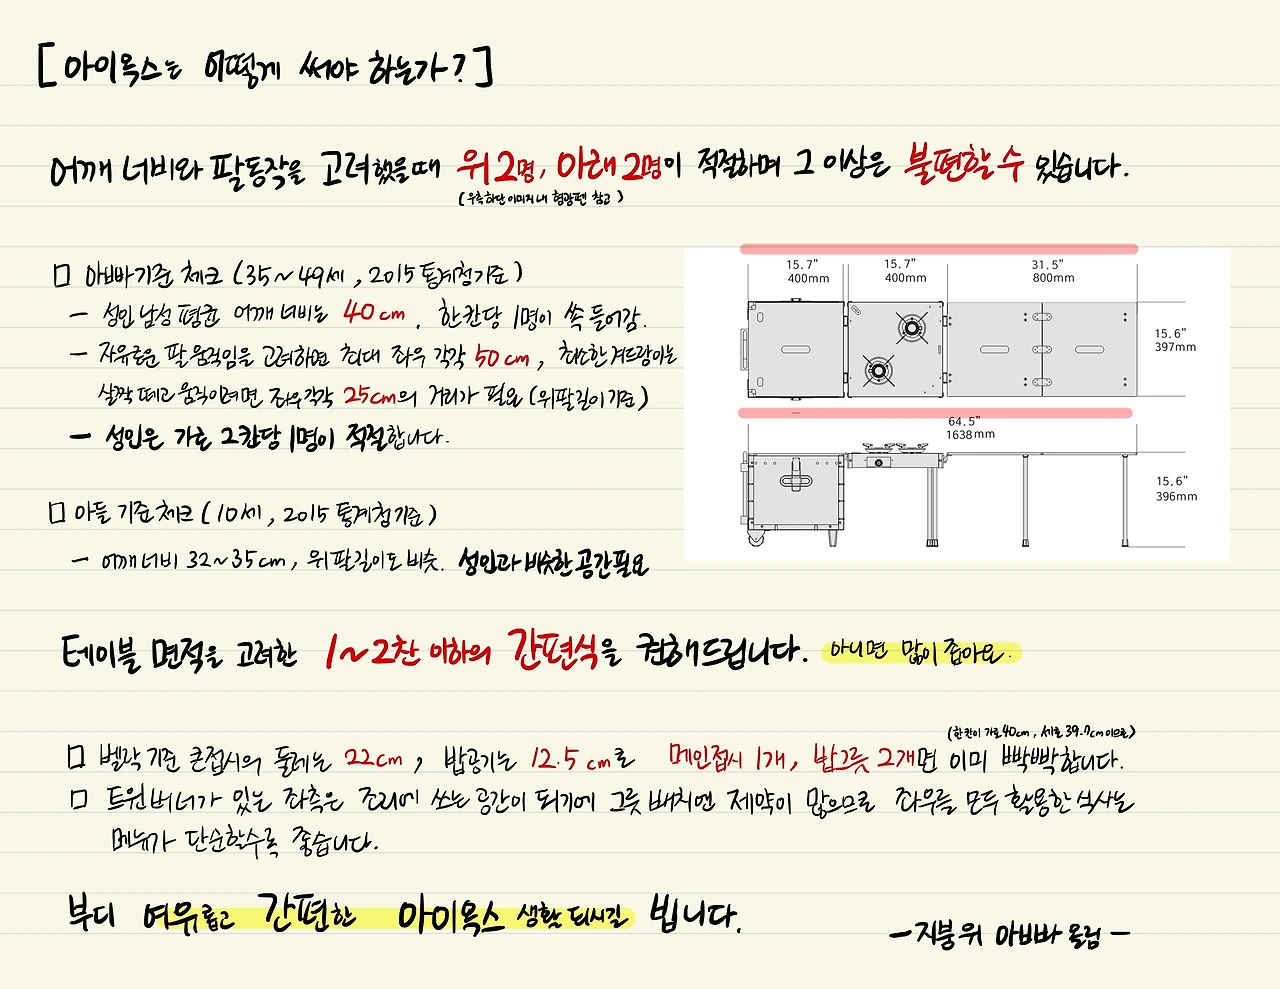 [아이욕스는 어떻게 써야 하는가?]
어깨 너비와 팔동작을 고려했을때 위2명, 아래2명이 적절하며 그 이상은 불편할 수 있습니다.
(우측하단 이미지내 형광펜 참고)
□ 아빠기준 체크 (35~49세, 2015통계청기준)
- 성인 남성 평균 어깨 너비는 40cm. 한칸당 1명이 쏙 들어감.
- 자유로운 팔 움직임을 고려하면 최대 좌우 각각 50cm, 최소한 겨드랑이는
살짝 떼고 움직이려면 좌우각각 25cm의 거리가 필요 (위팔길이기준)
- 성인은 가로 2칸당 1명이 적절합니다.
□ 아들 기준체크 (10세, 2015통계청기준)
- 어깨너비 32~35cm, 위팔길이도 비슷. 성인과 비슷한 공간필요
15.7"
400mm
15.7"
400mm
31.5"
800mm
15.6"
397mm
64.5"
1638mm
15.6"
396mm
테이블 면적을 고려한 1~2찬 이하의 간편식을 권해드립니다. 아니면 많이 좁아요.
(한칸이 가로40cm, 세로39.7cm이므로)
□ 벨라 기준 큰접시의 둘레는 22cm, 밥공기는 12.5cm로 메인접시 1개, 밥그릇 2개면 이미 빡빡합니다.
□ 트윈버너가 있는 좌측은 조리에 쓰는 공간이 되기에 그릇 배치엔 제약이 많으므로 좌우를 모두 활용한 식사는
메뉴가 단순할수록 좋습니다.
부디 여유롭고 간편한 아이욕스 생활 되시길 빕니다.
- 지붕위 아빠 올림 -